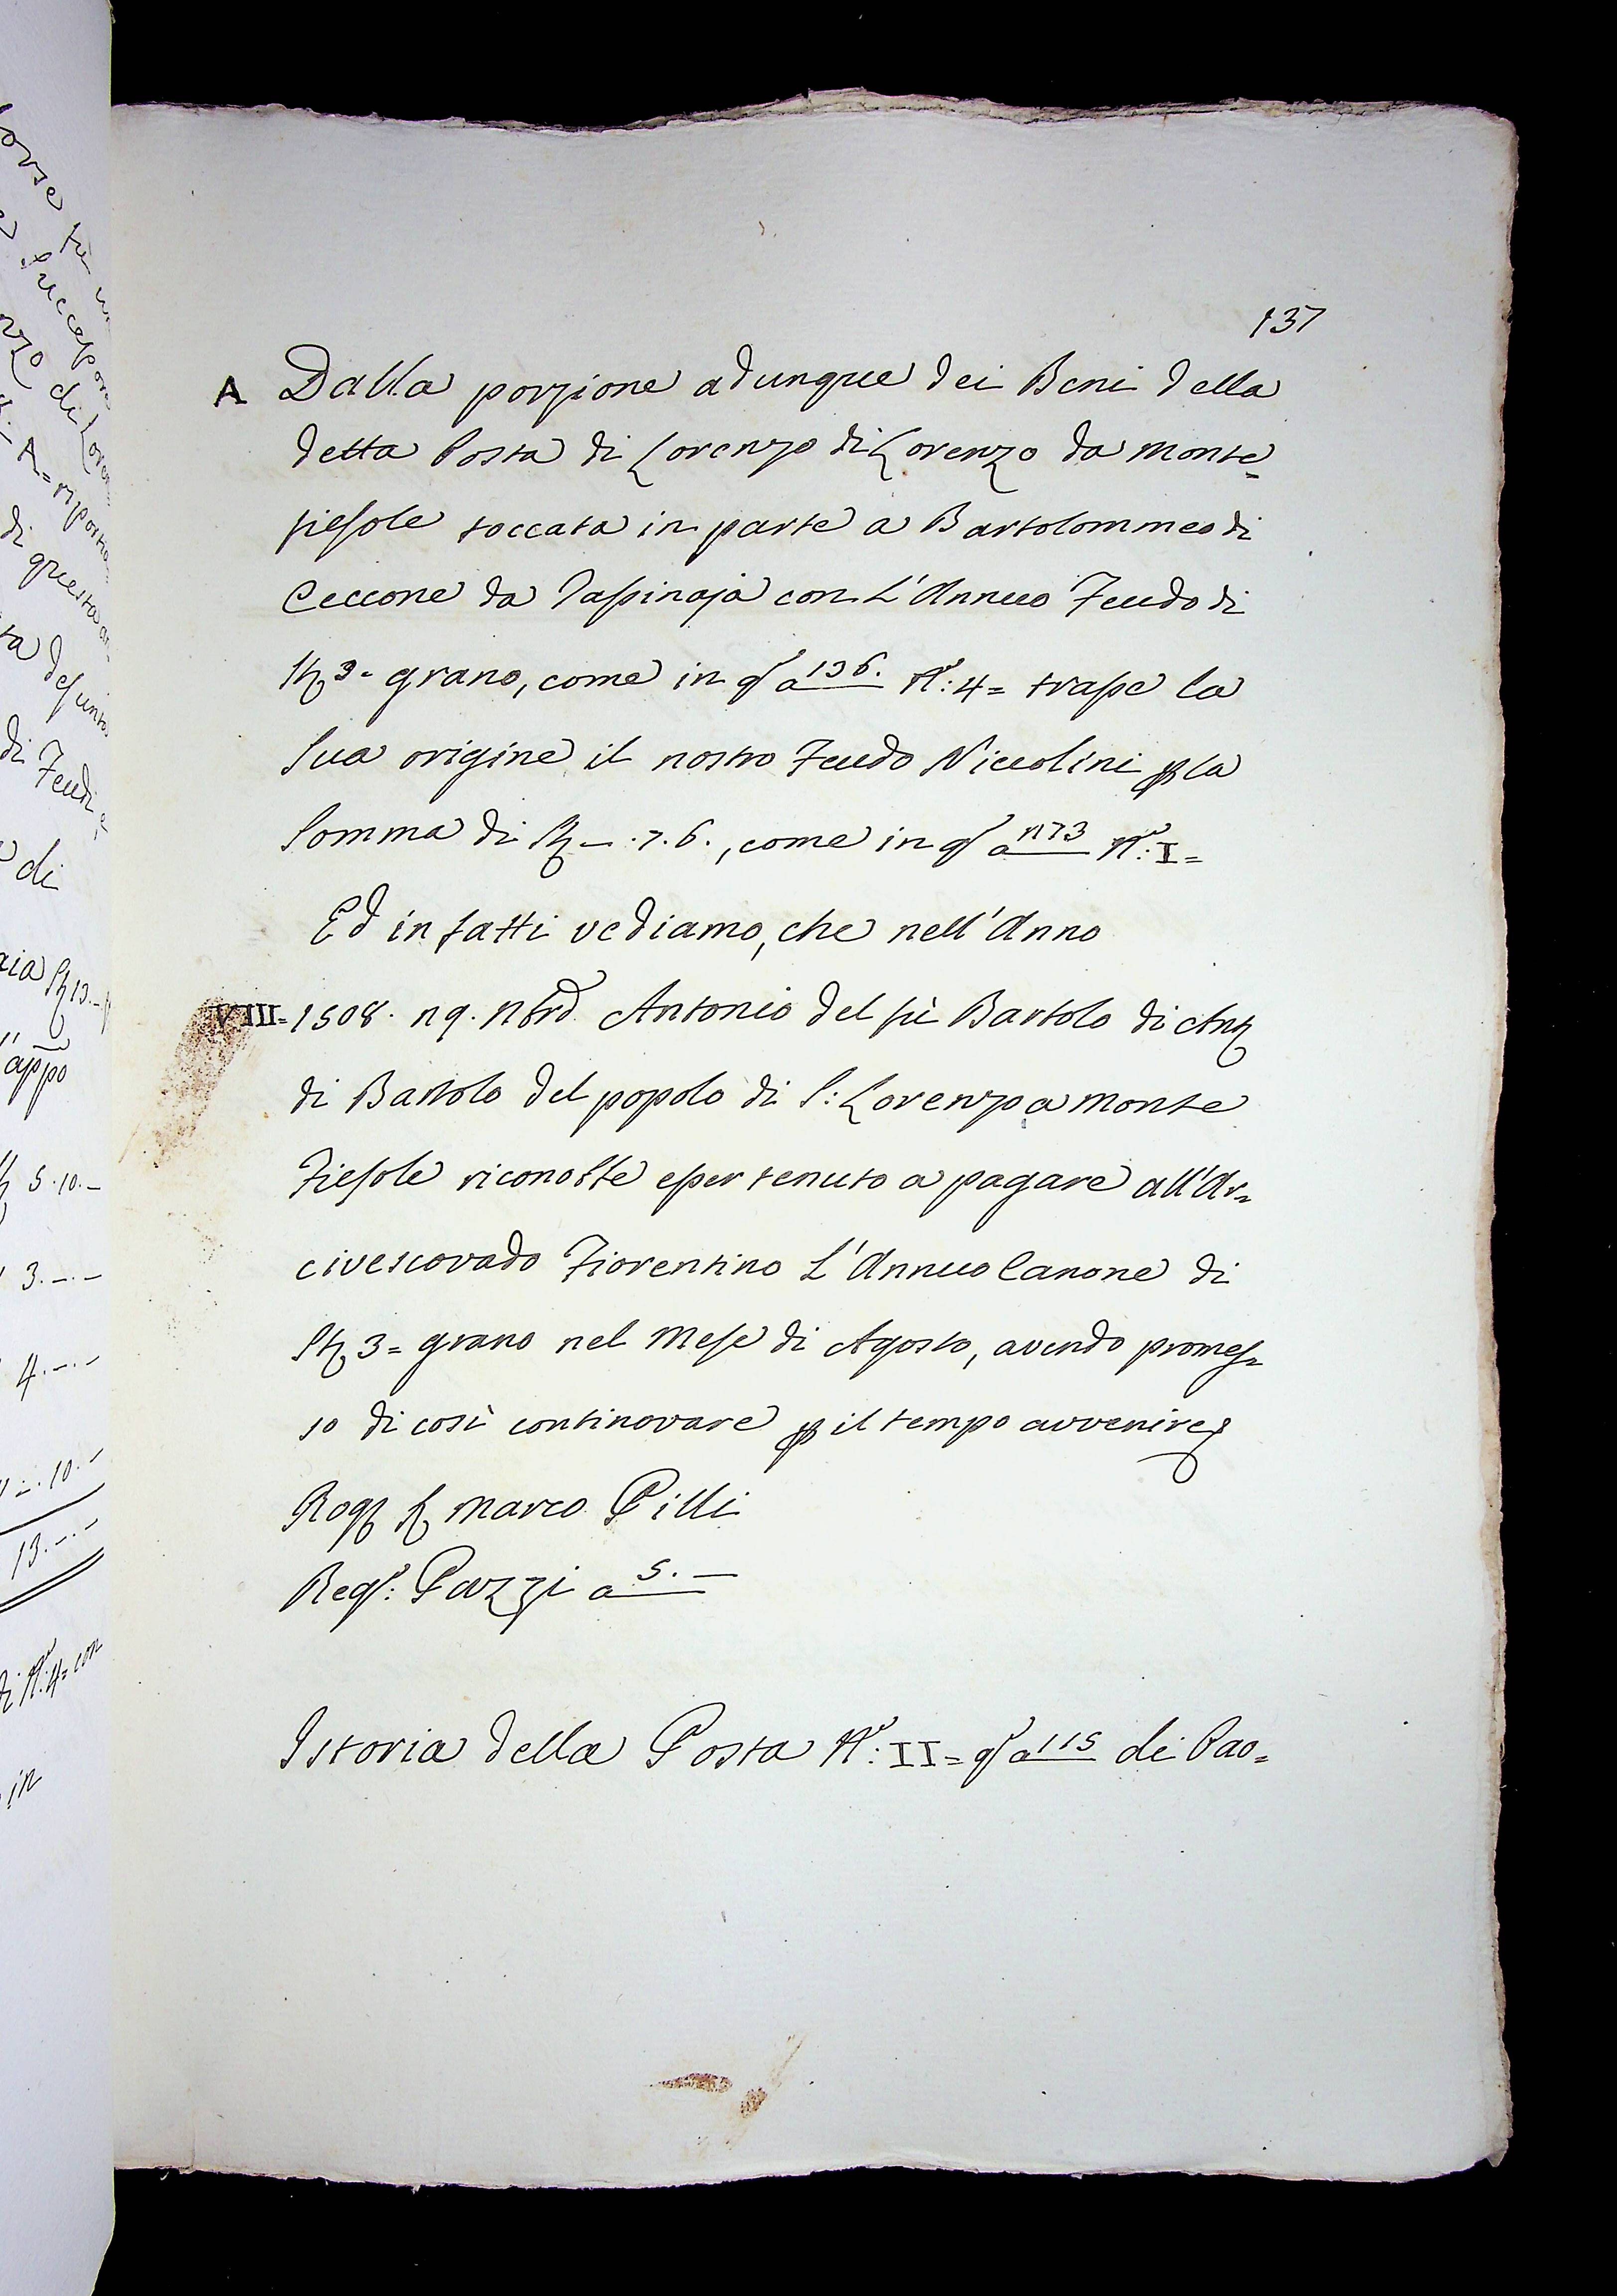 137
A Dalla porzione adunque dei Beni della
detta Posta di Lorenzo di Lorenzo da Monte=
fiesole toccata in parte a Bartolommeo di
Ceccone da Passinaja con L'Annuo Feudo di
St. 3= grano, come in q.o a 136. N.o: 4= trasse la
Sua origine il nostro Feudo Niccolini p la
Somma di St. -.7.6., come in q.o a 1173 N.o: I=
Ed in fatti vediamo, che nell'Anno
VIII= 1508. 19. Nbre Antonio del fù Bartolo di Ant.
di Bartolo del popolo di S: Lorenzo a Monte
Fiesole riconobbe esser tenuto a pagare all'Ar=
civescovado Fiorentino L'Annuo Canone di
St. 3= grano nel Mese di Agosto, avendo promes=
so di così continovare p il tempo avvenire
Rog. S. Marco Pilli
Reg.o: Pazzi a 5.-
Istoria della Posta N.o: II= q.o a 115 di Pao=
di questa
di Feudi
di
appo
5.10.-
3.-.-
4.-.-
-.10.-
13.-.-
di N.o: 4= con
in